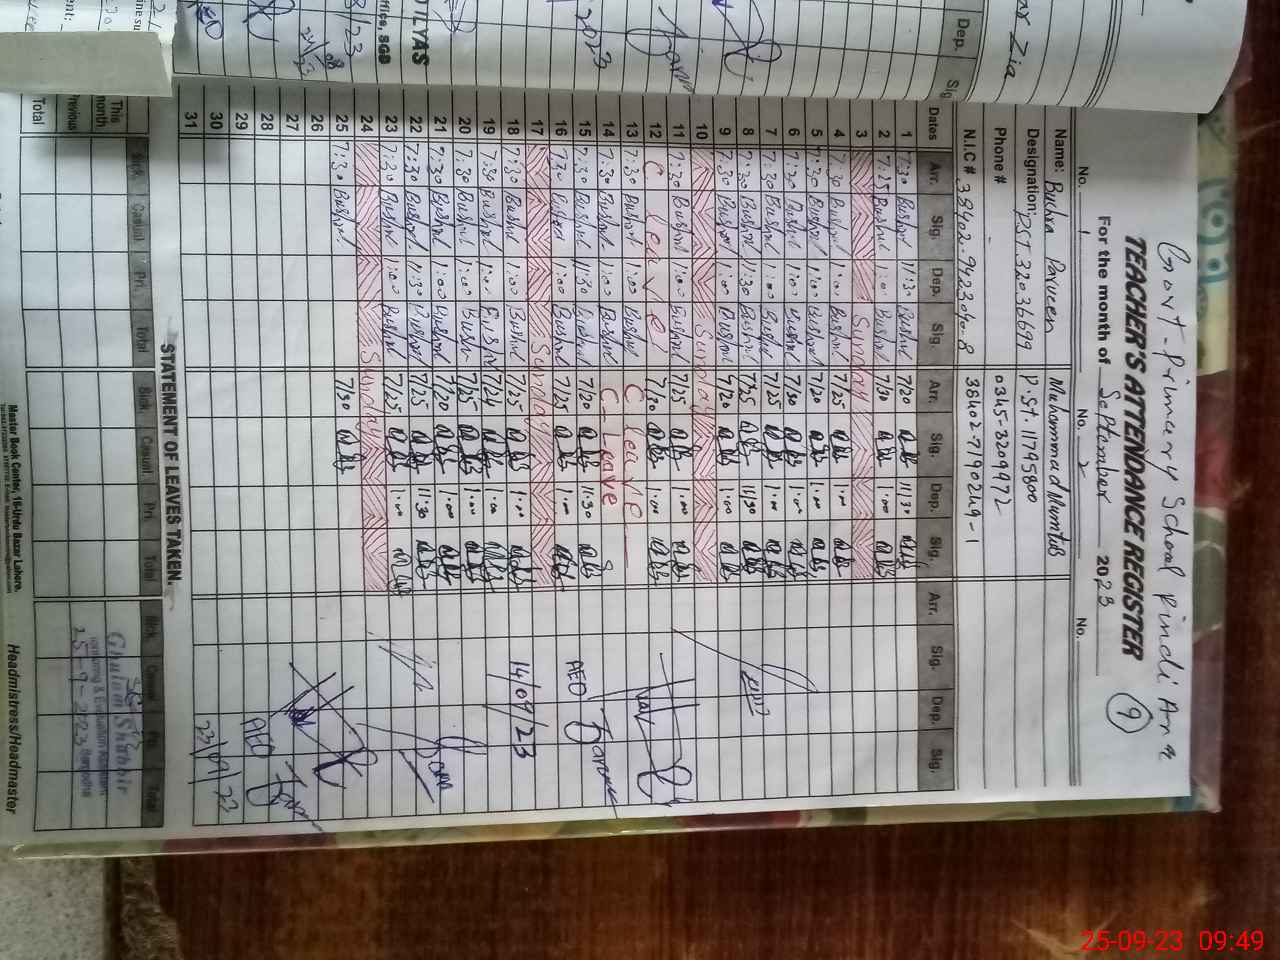 Govt. Primary School Pindi Arna
9
TEACHER'S ATTENDANCE REGISTER
For the month of September 2023
No. 1 No. 2 No.
Name: Bushra Parveen Muhammad Mumtaz
Designation: PST 32036699 P.St. 11795800
Phone # 0345-3209972
N.I.C # 38402-9423040-8 38402-7190249-1
Dates Arr. Sig. Dep. Sig. Arr. Sig. Dep. Sig. Arr. Sig. Dep. Sig.
1 7:30 Bushra 11:30 Bushra 7/20 11/30
2 7:25 Bushra 1:00 Bushra 7/30 1:00
3 Sunday
4 7:30 Bushra 1:00 Bushra 7/25 1:00
5 7:30 Bushra 1:00 Bushra 7/20 1:00
6 7:20 Bushra 1:00 Bushra 7/30 1:00
7 7:30 Bushra 1:00 Bushra 7/25 1:00
8 7:30 Bushra 11:30 Bushra 7/25 11/30
9 7:30 Bushra 1:00 Bushra 7/20 1:00
10 Sunday
11 7:20 Bushra 1:00 Bushra 7/25 1:00
12 C Leave 7/30 1:00
13 7:30 Bushra 1:00 Bushra C Leave
14 7:30 Bushra 1:00 Bushra C-Leave
15 7:30 Bushra 11:30 Bushra 7/20 11:30
16 7:20 Bushra 1:00 Bushra 7/25 1:00
17 Sunday
18 7:30 Bushra 1:00 Bushra 7/25 1:00
19 7:30 Bushra 1:00 Bushra 7/24 1:00
20 7:30 Bushra 1:00 Bushra 7/25 1:00
21 7:30 Bushra 1:00 Bushra 7/20 1:00
22 7:30 Bushra 11:30 Bushra 7/25 11:30
23 7:30 Bushra 1:00 Bushra 7/25 1:00
24 Sunday
25 7:30 Bushra 7/30
26
27
28
29
30
31
AEO
14/09/23
AEO
23/09/23
STATEMENT OF LEAVES TAKEN.
Sick. Casual Pri. Total Sick. Casual Pri Total Sick. Casual Pri. Total
This month
Previous
Total
Ghulam Shabbir
Monitoring & Evaluation Assistant
Sargodha
25-9-2023
Master Book Center, 16-Urdu Bazar Lahore.
Headmistress/Headmaster
ar Zia
Dep. Sig
2023
ILYAS
ffice, SGD
8/23
24/08/23
25-09-23 09:49